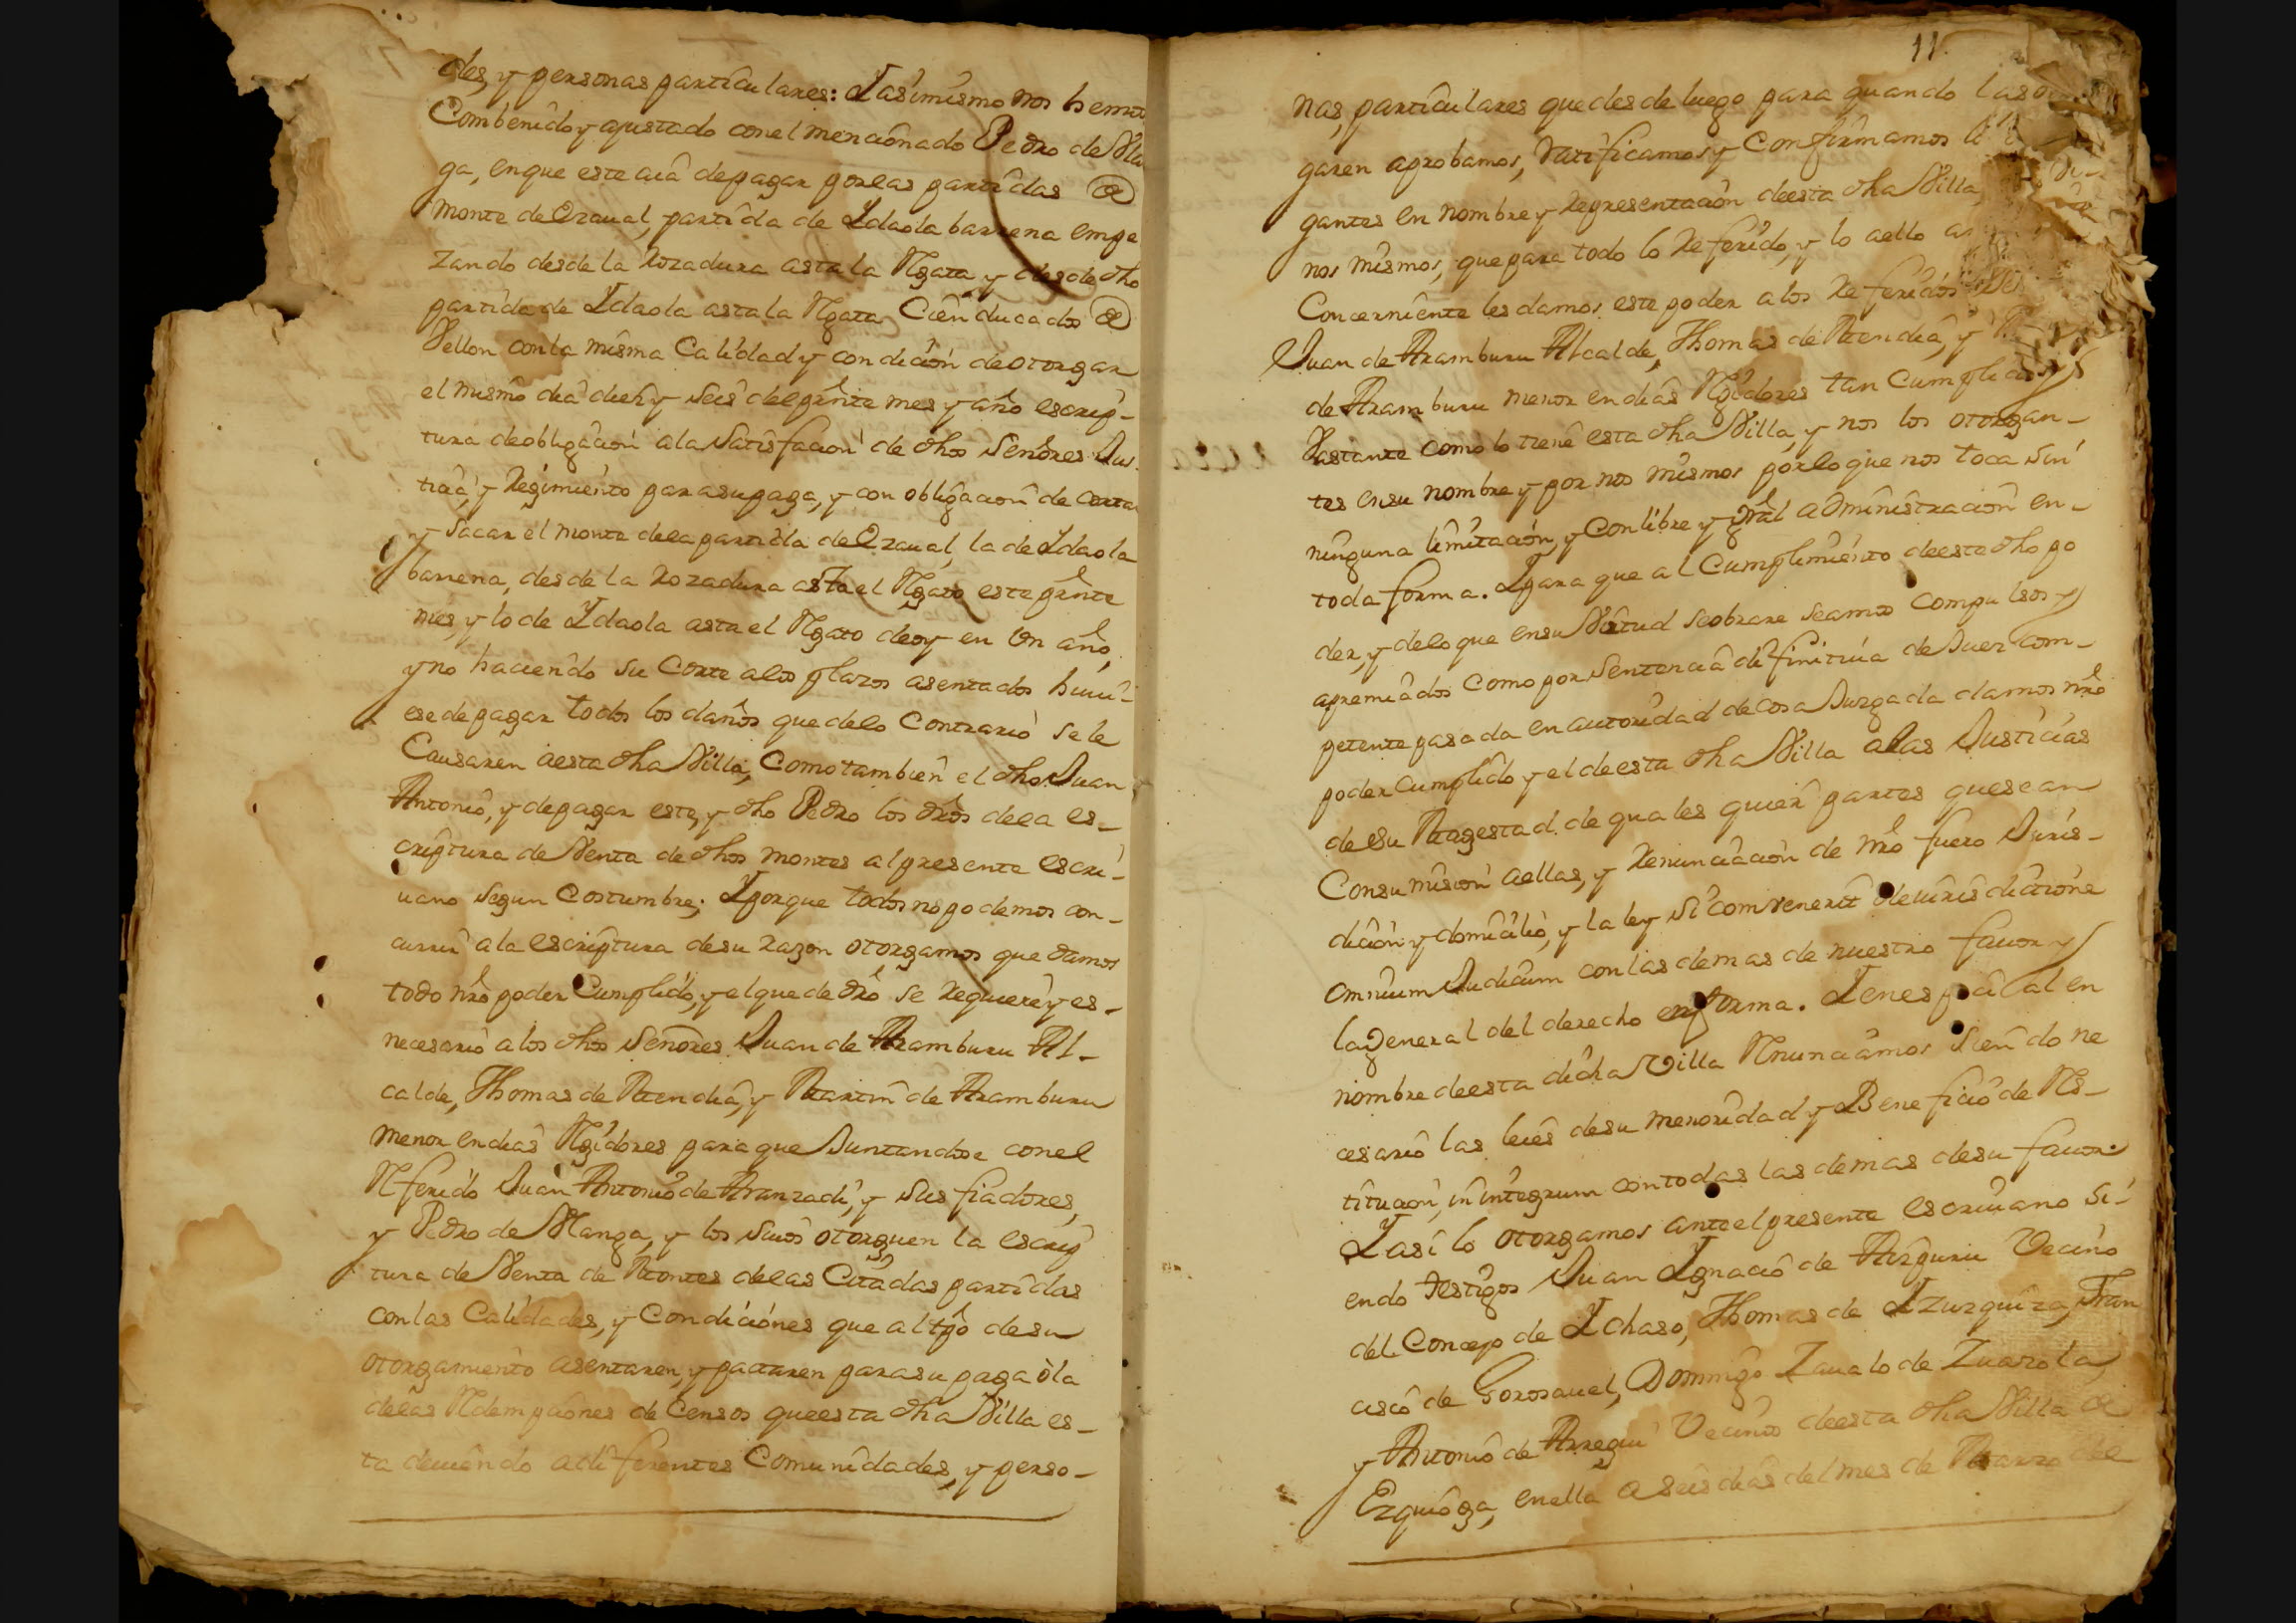 des, y personas particulares: Y asimismo nos hemos
Combenido y ajustado con el mencionado Pedro de Ma
ga, en que este aia de pagar por las partidas de
monte de Ezaual, partida de Ydaola barrena empe
zando desde la Rozadura asta la Regata, y desde dha
partida de Ydaola asta la Regata Cien ducados de
Vellon con la misma Calidad y condicion de otorgar
el mismo dia diez y seis del presnte mes y año escrip-
tura de obligacion a la Satisfacion de dhos Señores Jus
ticia, y Regimiento para su paga, y con obligacion de cortar
y Sacar el monte de la partida de Ezaual, la de Ydaola
barrena, desde la Rozadura asta el Regato este presnte
mes, y lo de Ydaola asta el Regato de oy en Un año,
y no haciendo su Corte a los plazos asentados huui-
ese de pagar todos los daños que de lo Contrario se le
Causaren a esta dha Villa, Como tambien el dho Juan
Antonio, y de pagar este, y dho Pedro los dros de la es-
criptura de Venta de dhos montes al presente escri-
uano segun Costumbre; Y porque todos no podemos con-
currir a la escriptura de su razon otorgamos que damos
todo nro poder Cumplido, y el que de dro se requiere y es-
necesario a los dhos Señores Juan de Aramburu Al-
calde, Thomas de Mendia, y Martin de Aramburu
menor en dias Regidores para que Juntandose con el
Referido Juan Antonio de Aranzadi, y sus fiadores,
y Pedro de Manga, y los suios otorguen la escrip
tura de Venta de Montes de las Citadas partidas
con las Calidades, y Condiciones que al tpo de su
otorgamiento asentaren, y pactaren para su paga o la
de las Redempciones de Censos que esta dha Villa es-
ta deuiendo a diferentes Comunidades, y perso-
11.
nas, particulares que desde luego para quando las
garen aprobamos, ratificamos y Confirmamos
gantes en nombre y Representacion de esta dha Villa,
nos mismos, que para todo lo Referido, y lo a ello
Concerniente les damos este poder a los Referidos
Juan de Aramburu Alcalde, Thomas de Mendia, y
de Aramburu menor en dias Regidores tan Cumplido y
Bastante como lo tiene esta dha Villa, y nos los otorgan-
tes en su nombre y por nos mismos por lo que nos toca sin
ninguna limitacion, y Con libre y gral administracion en-
toda forma. Y para que al Cumplimiento de este dho po
der, y de lo que en su Virtud se obrare seamos compulsos y
apremiados Como por Sentencia difinitiua de Juez com-
petente pasada en autoridad de cosa Juzgada damos nro
poder Cumplido y el de esta dha Villa a las Justicias
de su Magestad de quales quier partes que sean
Con sumision a ellas, y Renunciacion de nro fuero Juris-
dicion y domicilio, y la ley si combenerit de iurisdictione
omnium Judicum con las demas de nuestro fauor y
la general del derecho en forma. Y en especial en
nombre de esta dicha Villa Renunciamos siendo ne
cesario las leies de su menoridad y Beneficio de Res-
titucion, in integrum con todas las demas de su fauor.
Y asi lo otorgamos ante el presente escriuano si-
endo testigos Juan Ygnacio de Aizpuru Vecino
del Concejo de Ychaso, Thomas de Yzurquiza, Fran
cisco de Gorosauel, Domingo Zaualo de Zuazola,
y Antonio de Arregui Vecinos de esta dha Villa de
Ezquioga, en ella a seis dias del mes de Marzo de